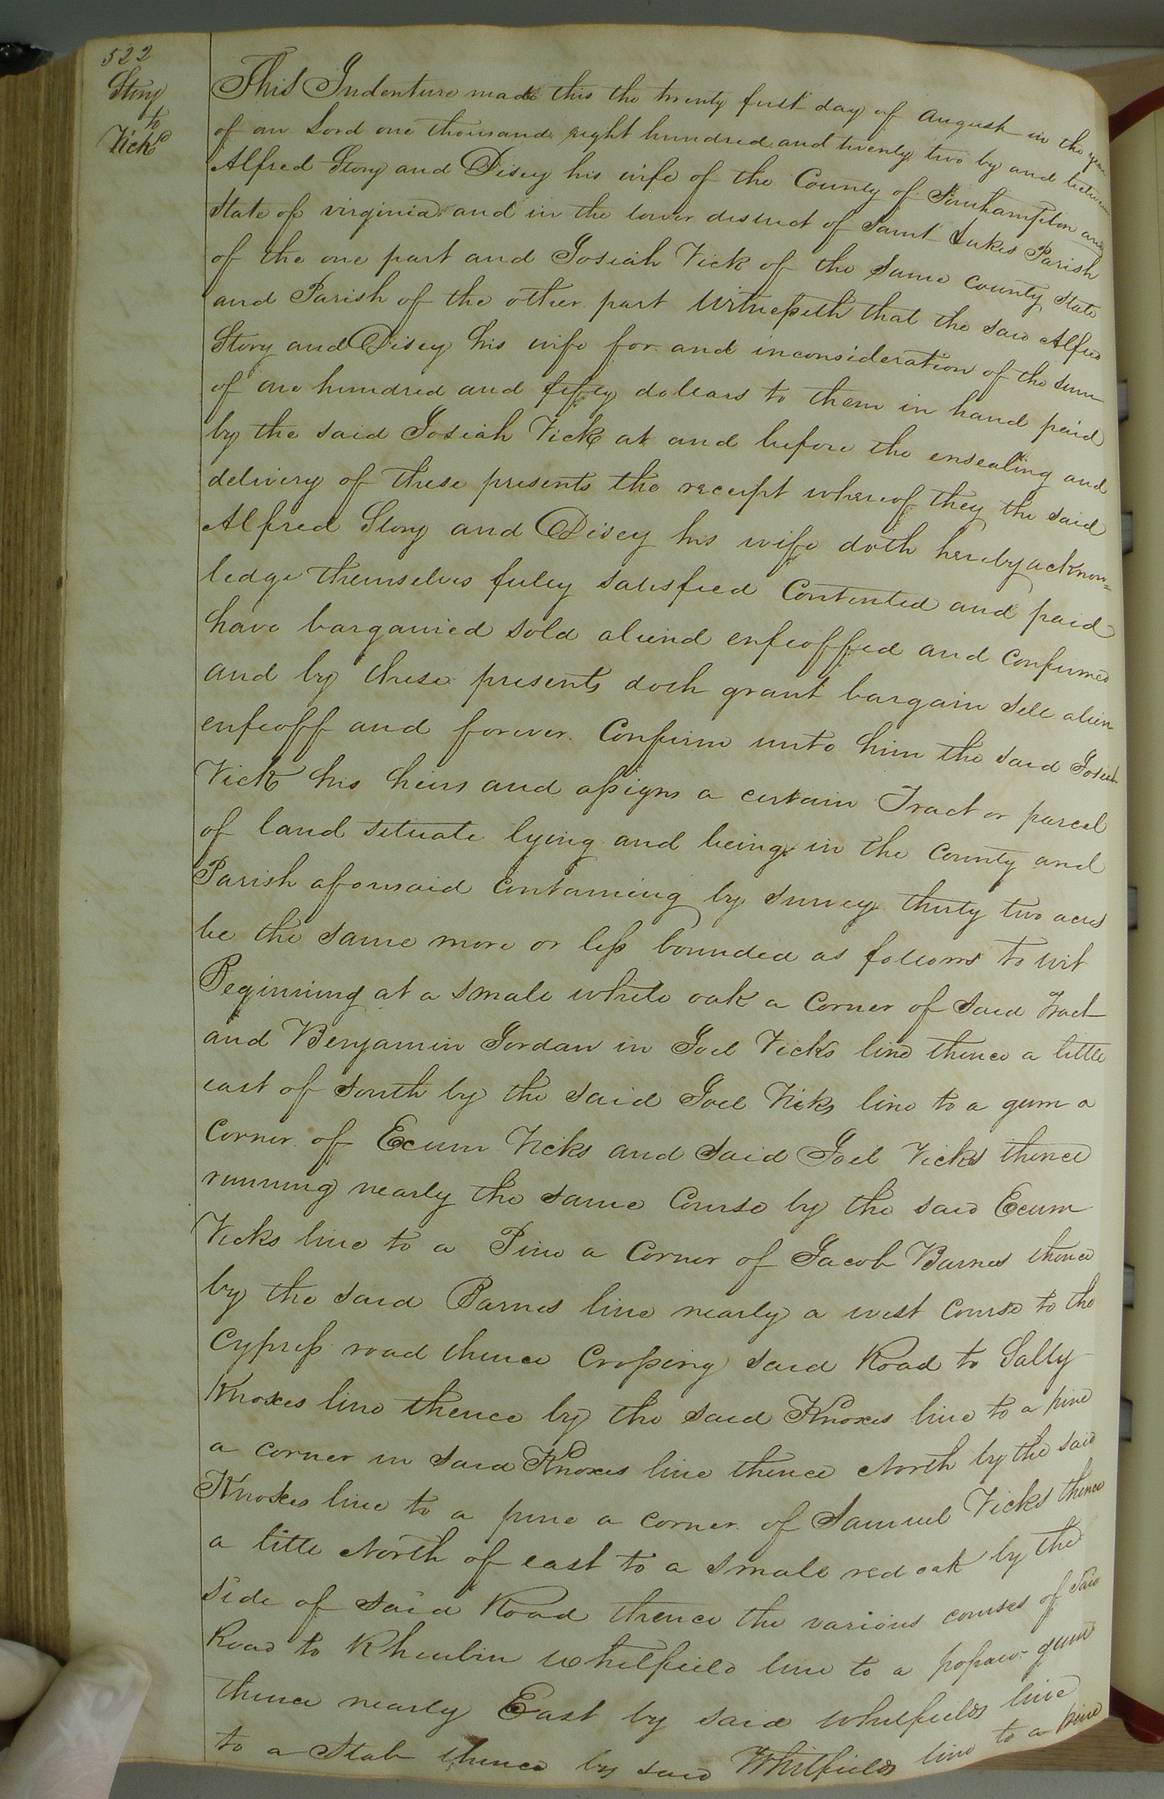 522
Story
to
Vick
This Indenture made this the twenty first day of August in the year
of our Lord one thousand eight hundred and twenty two by and between
Alfred Story and Disey his wife of the County of Southampton and
State of virginia and in the lower district of Saint Lukes Parish
of the one part and Josiah Vick of the same County State
and Parish of the other part Witnesseth that the said Alfred
Story and Disey his wife for and inconsideration of the sum
of one hundred and fifty dollars to them in hand paid
by the said Josiah Vick at and before the ensealing and
delivery of these presents the receipt whereof they the said
Alfred Story and Disey his wife doth hereby acknow=
ledge themselves fuley satisfied Contented and paid
have barganied sold aliend enfeoffed and Confirmed
and by these presents doth grant bargain Sell alien
enfeoff and forever Confirm unto him the said Josiah
Vick his heirs and assigns a certain Tract or parcel
of land situate lying and being in the County and
Parish aforesaid containing by survey thirty two acres
be the same more or less bounded as follows to wit
Beginning at a small white oak a Corner of said Tract
and Benjamin Jordan in Joel Vicks line thence a little
east of South by the said Joel Vicks line to a gum a
Corner of Ecum Vicks and said Joel Vicks thence
running nearly the same Course by the said Ecum
Vicks line to a Pine a Corner of Jacob Barnes thence
by the said Barnes line nearly a west Course to the
Cypress road thence Crossing said Road to Sally
Knoxes line thence by the said Knoxes line to a pine
a corner in said Knoxes line thence North by the said
Knoxes line to a pine a corner of Samuel Vicks thence
a little North of east to a small red oak by the
side of said Road thence the various courses of said
Road to Rheubin Whitfield line to a popaw-gum
thence nearly East by said Whitfields line
to a Stab thence by said Whitfields line to a pine